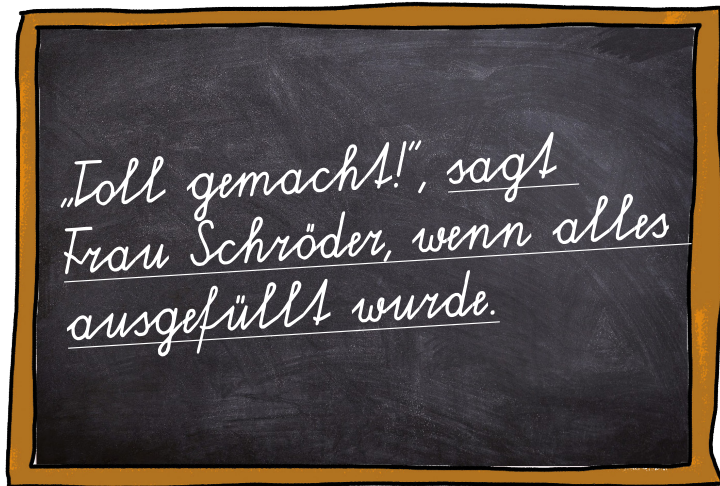 „Toll gemacht!“, sagt
Frau Schröder, wenn alles
ausgefüllt wurde.